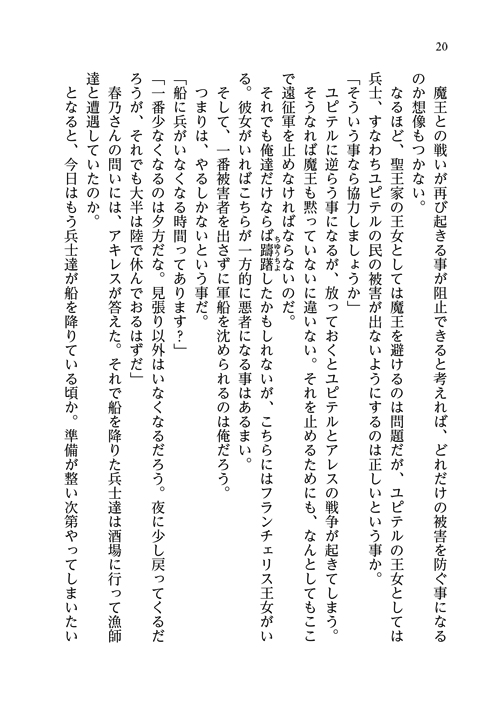 20
魔王との戦いが再び起きる事が阻止できると考えれば、どれだけの被害を防ぐ事になる
のか想像もつかない。
なるほど、聖王家の王女としては魔王を避けるのは問題だが、ユピテルの王女としては
兵士、すなわちユピテルの民の被害が出ないようにするのは正しいという事か。
「そういう事なら協力しましょうか」
ユピテルに逆らう事になるが、放っておくとユピテルとアレスの戦争が起きてしまう。
そうなれば魔王も黙っていないに違いない。それを止めるためにも、なんとしてもここ
で遠征軍を止めなければならないのだ。
それでも俺達だけならば躊躇したかもしれないが、こちらにはフランチェリス王女がい
る。彼女がいればこちらが一方的に悪者になる事はあるまい。
そして、一番被害者を出さずに軍船を沈められるのは俺だろう。
つまりは、やるしかないという事だ。
「船に兵がいなくなる時間ってあります?」
「一番少なくなるのは夕方だな。見張り以外はいなくなるだろう。夜に少し戻ってくるだ
ろうが、それでも大半は陸で休んでおるはずだ」
春乃さんの問いには、アキレスが答えた。それで船を降りた兵士達は酒場に行って漁師
達と遭遇していたのか。
となると、今日はもう兵士達が船を降りている頃か。準備が整い次第やってしまいたい